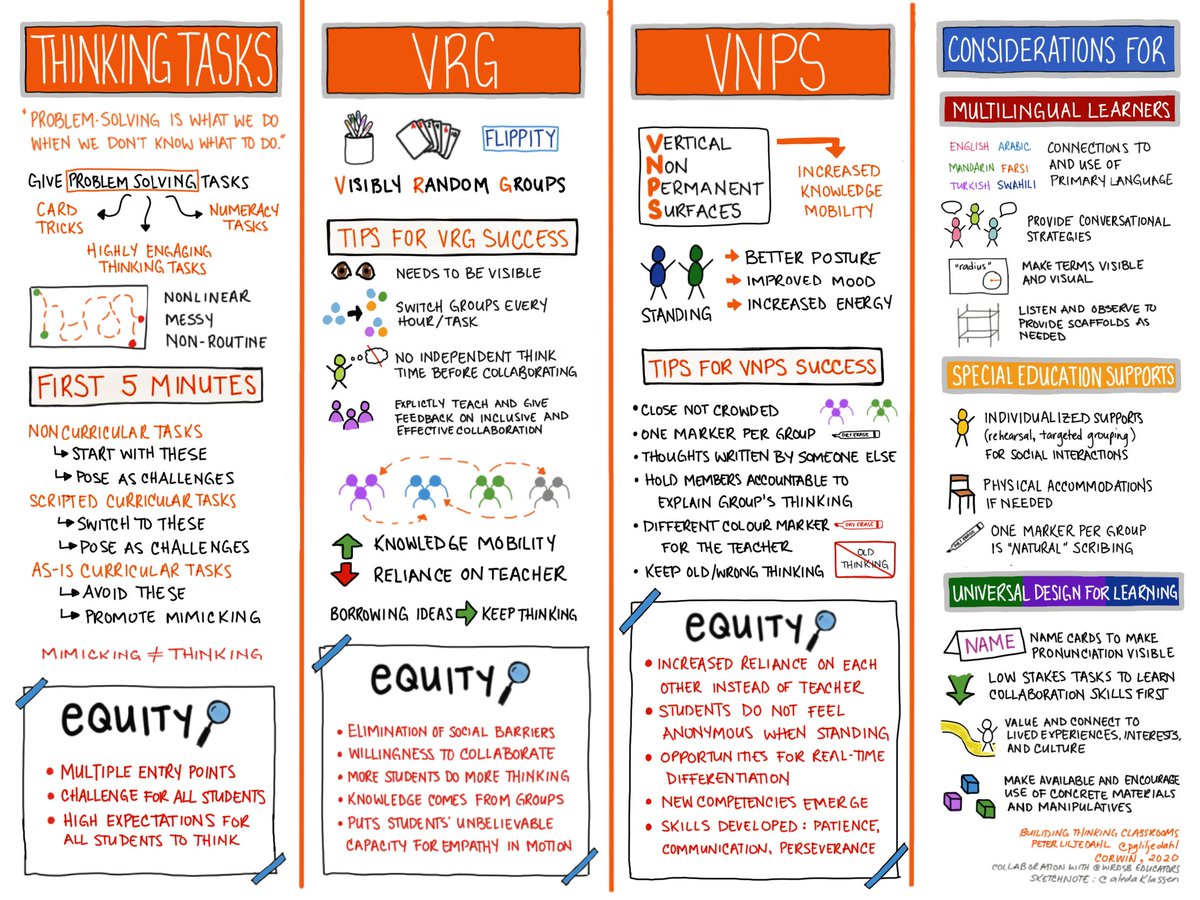 THINKING TASKS
"PROBLEM-SOLVING IS WHAT WE DO
WHEN WE DON'T KNOW WHAT TO DO."
GIVE PROBLEM SOLVING TASKS
CARD
TRICKS
NUMERACY
TASKS
HIGHLY ENGAGING
THINKING TASKS
NONLINEAR
MESSY
NON-ROUTINE
FIRST 5 MINUTES
NONCURRICULAR TASKS
START WITH THESE
POSE AS CHALLENGES
SCRIPTED CURRICULAR TASKS
SWITCH TO THESE
POSE AS CHALLENGES
AS-IS CURRICULAR TASKS
AVOID THESE
PROMOTE MIMICKING
MIMICKING ≠ THINKING
EQUITY
• MULTIPLE ENTRY POINTS
• CHALLENGE FOR ALL STUDENTS
• HIGH EXPECTATIONS FOR
ALL STUDENTS TO THINK
VRG
FLIPPITY
VISIBLY RANDOM GROUPS
TIPS FOR VRG SUCCESS
NEEDS TO BE VISIBLE
SWITCH GROUPS EVERY
HOUR/TASK
NO INDEPENDENT THINK
TIME BEFORE COLLABORATING
EXPLICTLY TEACH AND GIVE
FEEDBACK ON INCLUSIVE AND
EFFECTIVE COLLABORATION
KNOWLEDGE MOBILITY
RELIANCE ON TEACHER
BORROWING IDEAS KEEP THINKING
EQUITY
• ELIMINATION OF SOCIAL BARRIERS
• WILLINGNESS TO COLLABORATE
• MORE STUDENTS DO MORE THINKING
• KNOWLEDGE COMES FROM GROUPS
• PUTS STUDENTS' UNBELIEVABLE
CAPACITY FOR EMPATHY IN MOTION
VNPS
VERTICAL
NON
PERMANENT
SURFACES
INCREASED
KNOWLEDGE
MOBILITY
STANDING
BETTER POSTURE
IMPROVED MOOD
INCREASED ENERGY
TIPS FOR VNPS SUCCESS
• CLOSE NOT CROWDED
• ONE MARKER PER GROUP DRY ERASE
• THOUGHTS WRITTEN BY SOMEONE ELSE
• HOLD MEMBERS ACCOUNTABLE TO
EXPLAIN GROUP'S THINKING
• DIFFERENT COLOUR MARKER DRY ERASE
FOR THE TEACHER
• KEEP OLD/WRONG THINKING
OLD
THINKING
EQUITY
• INCREASED RELIANCE ON EACH
OTHER INSTEAD OF TEACHER
• STUDENTS DO NOT FEEL
ANONYMOUS WHEN STANDING
• OPPORTUNITIES FOR REAL-TIME
DIFFERENTIATION
• NEW COMPETENCIES EMERGE
• SKILLS DEVELOPED: PATIENCE,
COMMUNICATION, PERSEVERANCE
CONSIDERATIONS FOR
MULTILINGUAL LEARNERS
ENGLISH ARABIC
MANDARIN FARSI
TURKISH SWAHILI
CONNECTIONS TO
AND USE OF
PRIMARY LANGUAGE
PROVIDE CONVERSATIONAL
STRATEGIES
"radius"
MAKE TERMS VISIBLE
AND VISUAL
LISTEN AND OBSERVE TO
PROVIDE SCAFFOLDS AS
NEEDED
SPECIAL EDUCATION SUPPORTS
INDIVIDUALIZED SUPPORTS
(rehearsal, targeted grouping)
FOR SOCIAL INTERACTIONS
PHYSICAL ACCOMMODATIONS
IF NEEDED
DRY ERASE
ONE MARKER PER GROUP
IS "NATURAL" SCRIBING
UNIVERSAL DESIGN FOR LEARNING
NAME
NAME CARDS TO MAKE
PRONUNCIATION VISIBLE
LOW STAKES TASKS TO LEARN
COLLABORATION SKILLS FIRST
VALUE AND CONNECT TO
LIVED EXPERIENCES, INTERESTS,
AND CULTURE
MAKE AVAILABLE AND ENCOURAGE
USE OF CONCRETE MATERIALS
AND MANIPULATIVES
BUILIDING THINKING CLASSROOMS
PETER LILJEDAHL @pgliljedahl
CORWIN, 2020
COLLABORATION WITH @WRDSB EDUCATORS
SKETCHNOTE: @aledaklassen